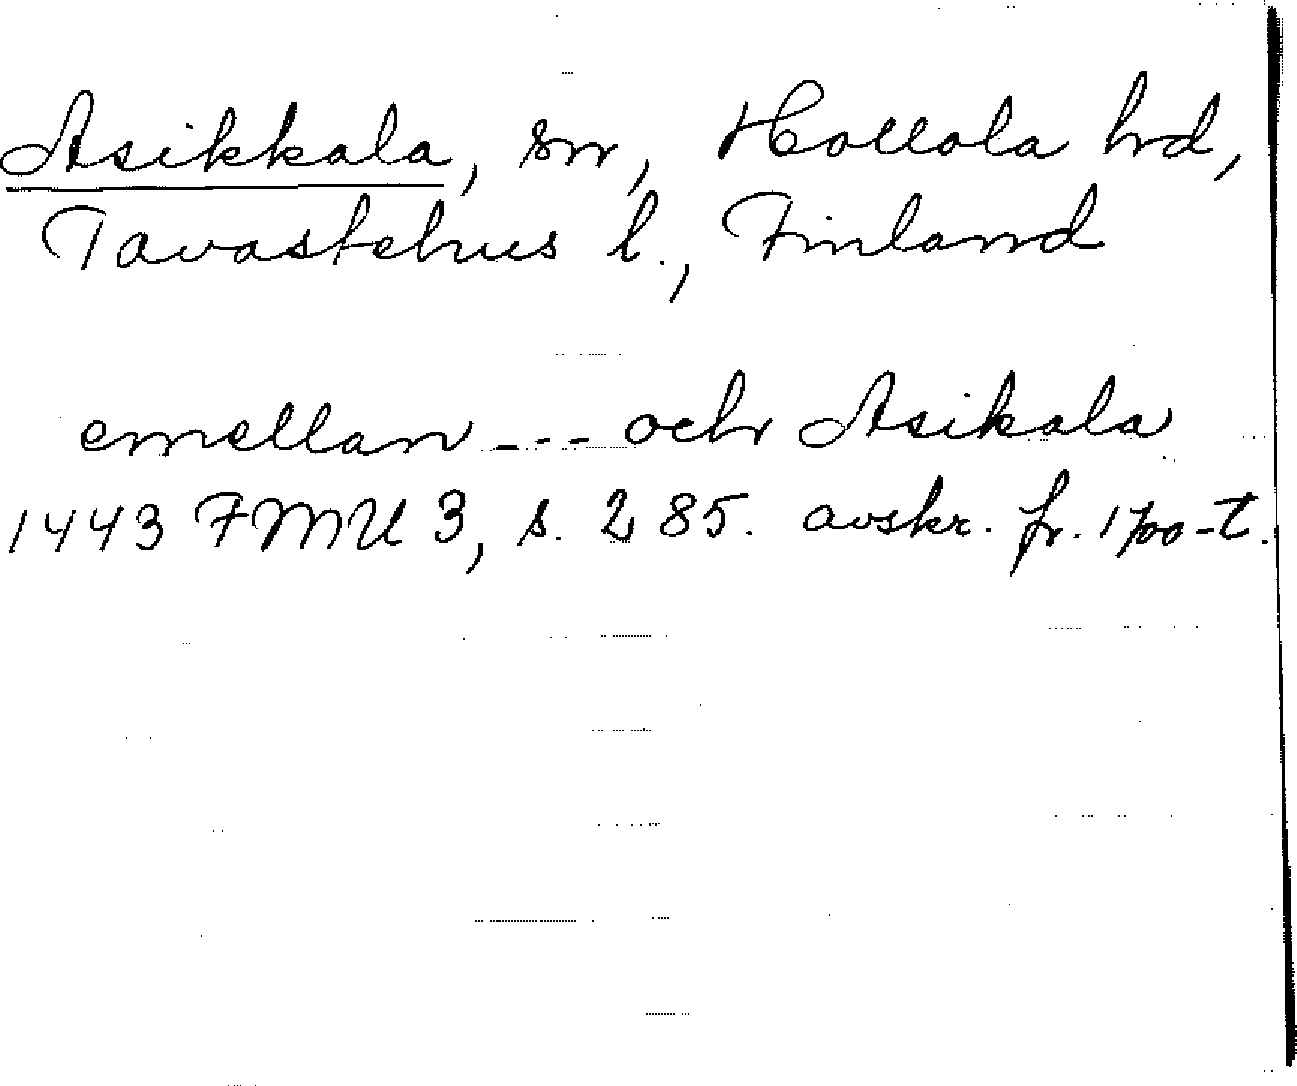 Asikkala, sn, Hollola hd,
Tavastehus l., Finland
emellan --- och Asikala
1443 FMU 3, s. 285. avskr. fr. 1700-t.